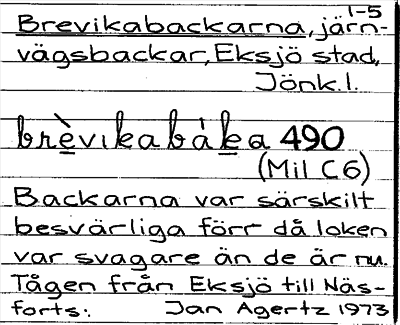 1-5
Brevikabackarna, järn-
vägsbackar, Eksjö stad,
Jönk.l.
brèvikabàka 490
(Mil C6)
Backarna var särskilt
besvärliga förr då loken
var svagare än de är nu.
Tågen från Eksjö till Näs-
forts. Jan Agertz 1973